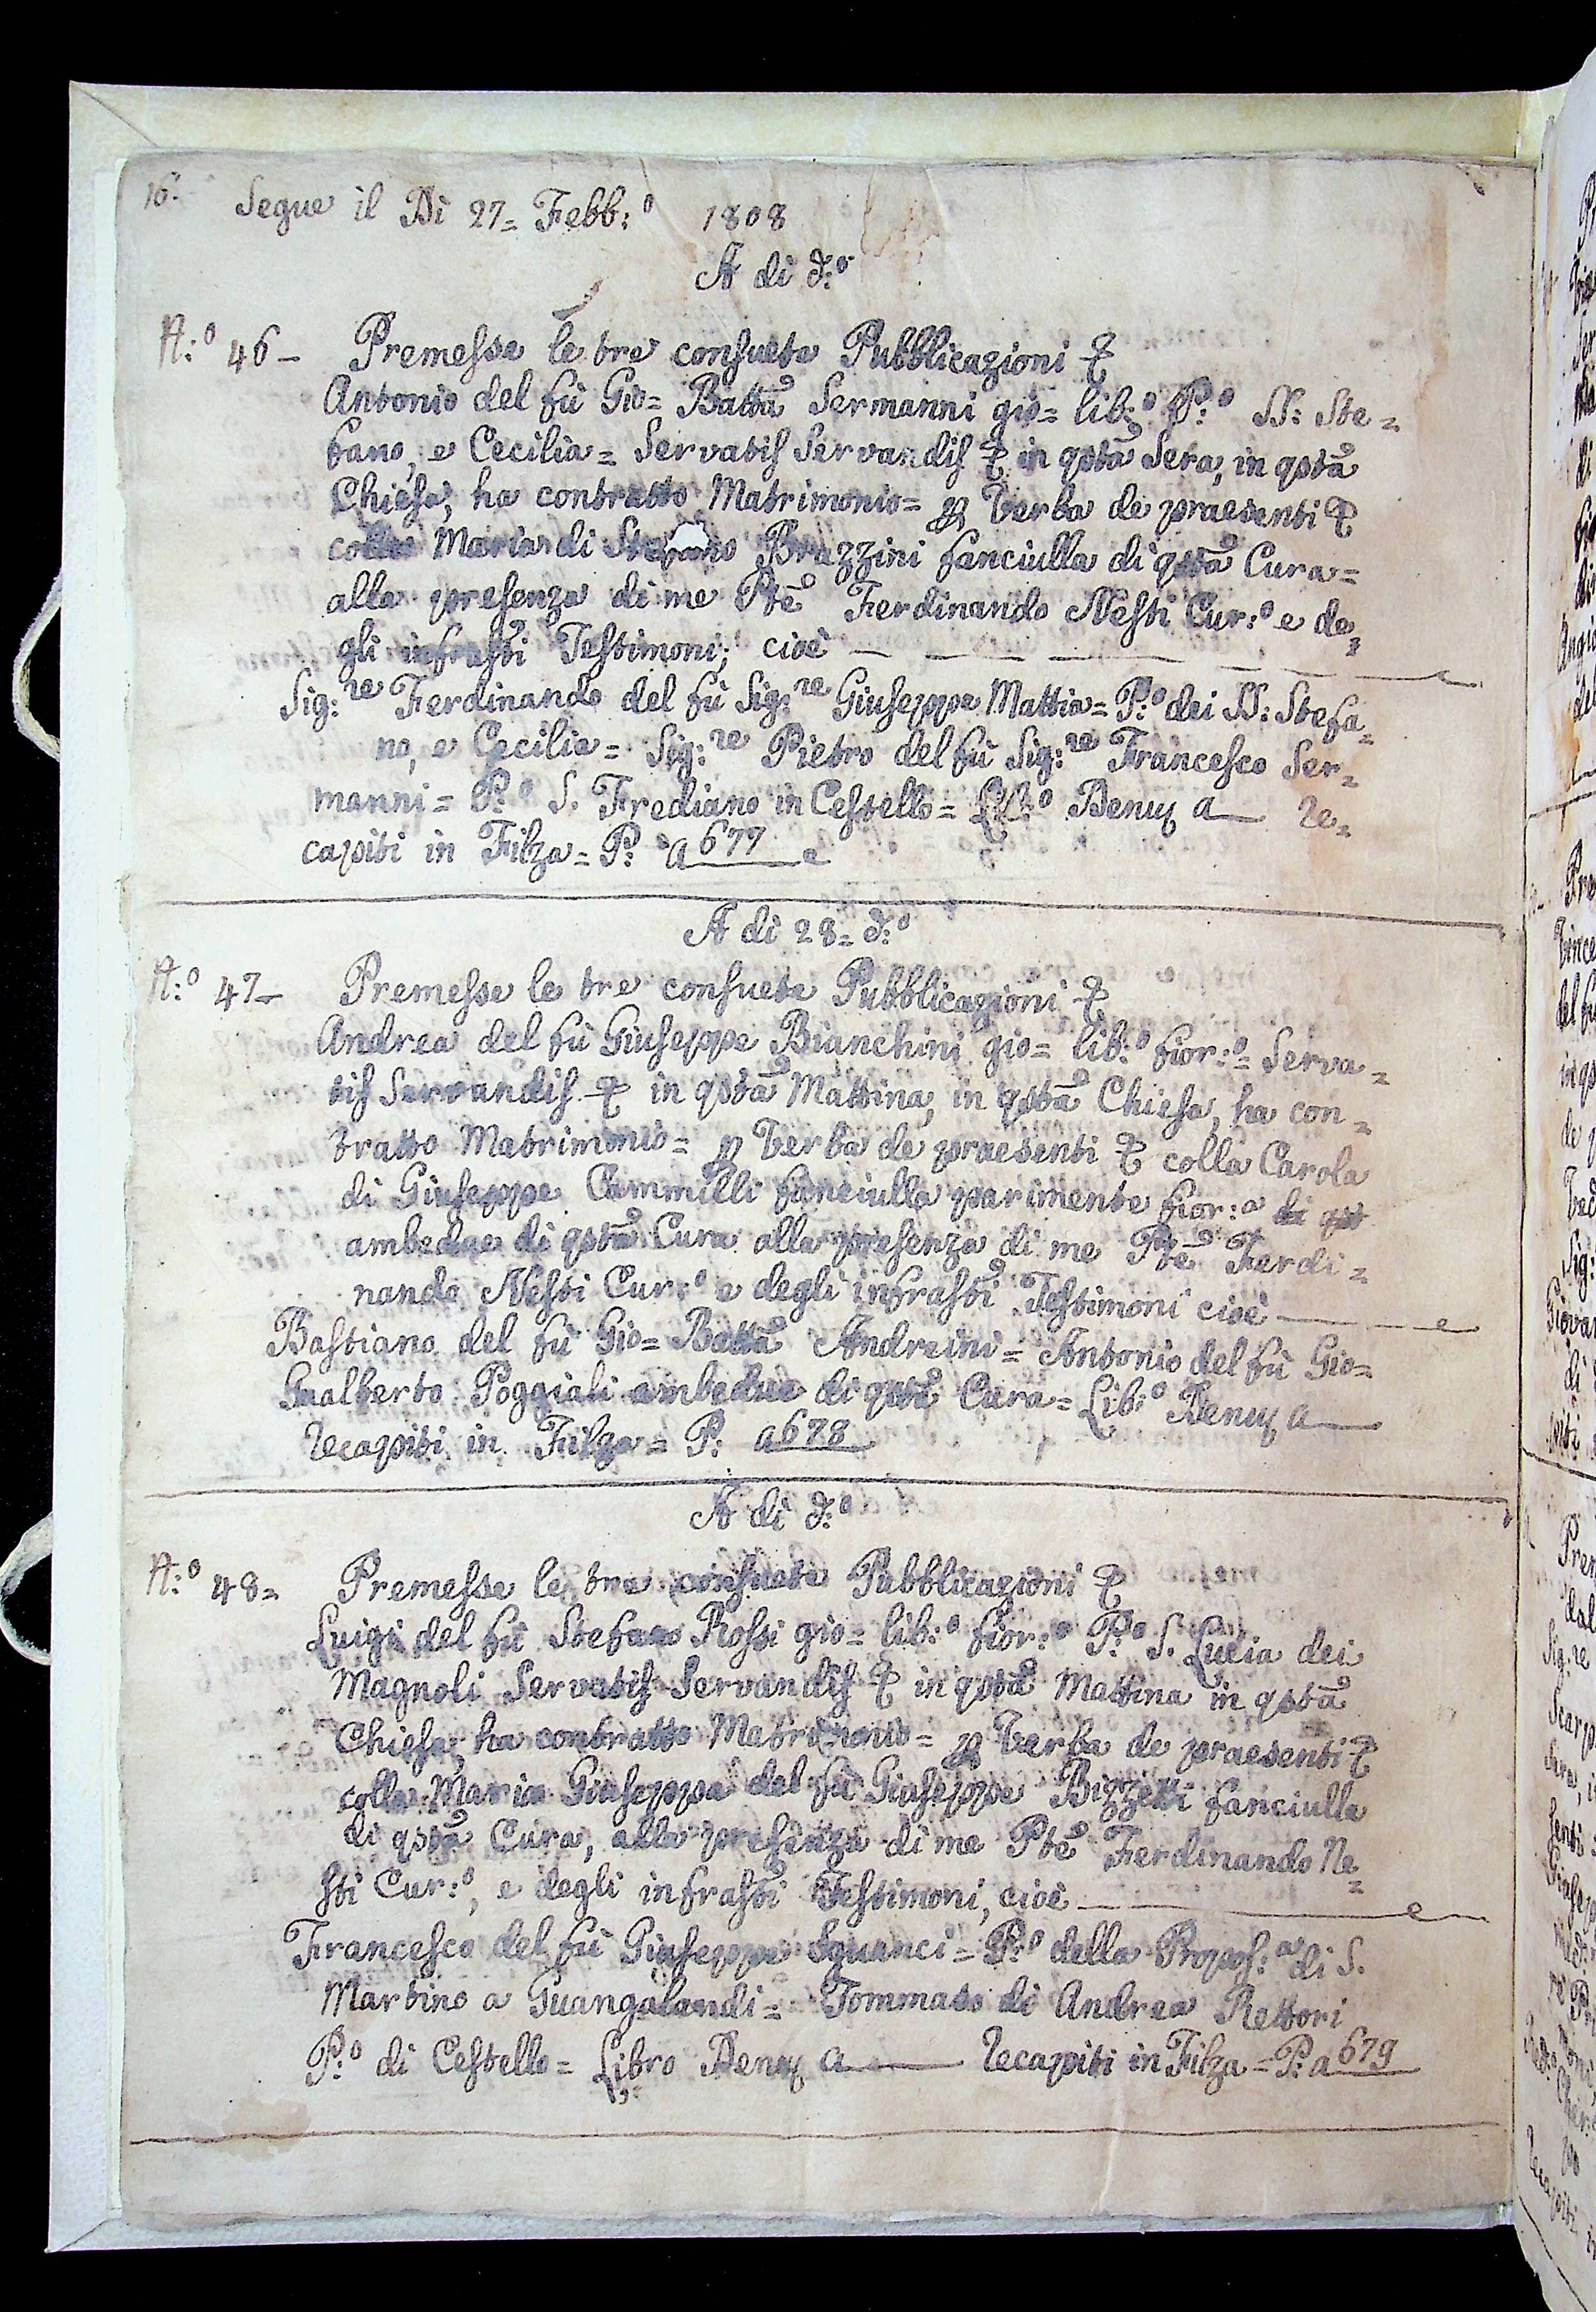 16. Segue il Dì 27= Febb:o 1808
A dì d:o
N:o 46- Premesse le tre consuete Pubblicazioni &
Antonio del fù Gio= Batta Sermanni gio= lib:o P:o SS: Ste=
fano, e Cecilia= Servatis Servandis & in qsta Sera, in qsta
Chiesa, ha contratto Matrimonio= p Verba de praesenti &
colla Maria di Stefano Brazzini fanciulla di qsta Cura=
alla presenza di me Pte Ferdinando Nesti Cur:o e de=
gli infrasti Testimoni; cioè
Sig:re Ferdinando del fù Sig:re Giuseppe Mattia= P:o dei SS: Stefa=
no, e Cecilia= Sig:re Pietro del fù Sig:re Francesco Ser=
manni= P:o S. Frediano in Cestello= Lib:o Denuz a Re=
capiti in Filza= P: a 677
A dì 28= d:o
N:o 47- Premesse le tre consuete Pubblicazioni &
Andrea del fù Giuseppe Bianchini gio= lib:o fior:o= Serva=
tis Servandis & in qsta Mattina, in qsta Chiesa, ha con=
tratto Matrimonio= p Verba de praesenti & colla Carola
di Giuseppe Cammilli fanciulla parimente fior:a di qst
ambedue di qsta Cura alla presenza di me Pte Ferdi=
nando Nesti Cur:o e degli infrasti Testimoni cioè
Bastiano del fù Gio= Batta Andreini= Antonio del fù Gio=
Gualberto Poggiali ambedue di qsta Cura= Lib:o Denuz a
Recapiti in Filza= P: a 678
A dì d:o
N:o 48= Premesse le tre consuete Pubblicazioni &
Luigi del fù Stefano Rossi gio= lib:o fior:o P:o S. Lucia dei
Magnoli Servatis Servandis & in qsta Mattina in qsta
Chiesa, ha contratto Matrimonio= p Verba de praesenti &
colla Maria Giuseppa del fù Giuseppe Bizzetti fanciulla
di qsta Cura, alla presenza di me Pte Ferdinando Ne=
sti Cur:o, e degli infrasti Testimoni, cioè
Francesco del fù Giuseppe Sguanci= P:o della Propos:a di S.
Martino a Guangalandi= Tommaso di Andrea Rettori
P:o di Cestello= Libro Denuz a Recapiti in Filza= P: a 679